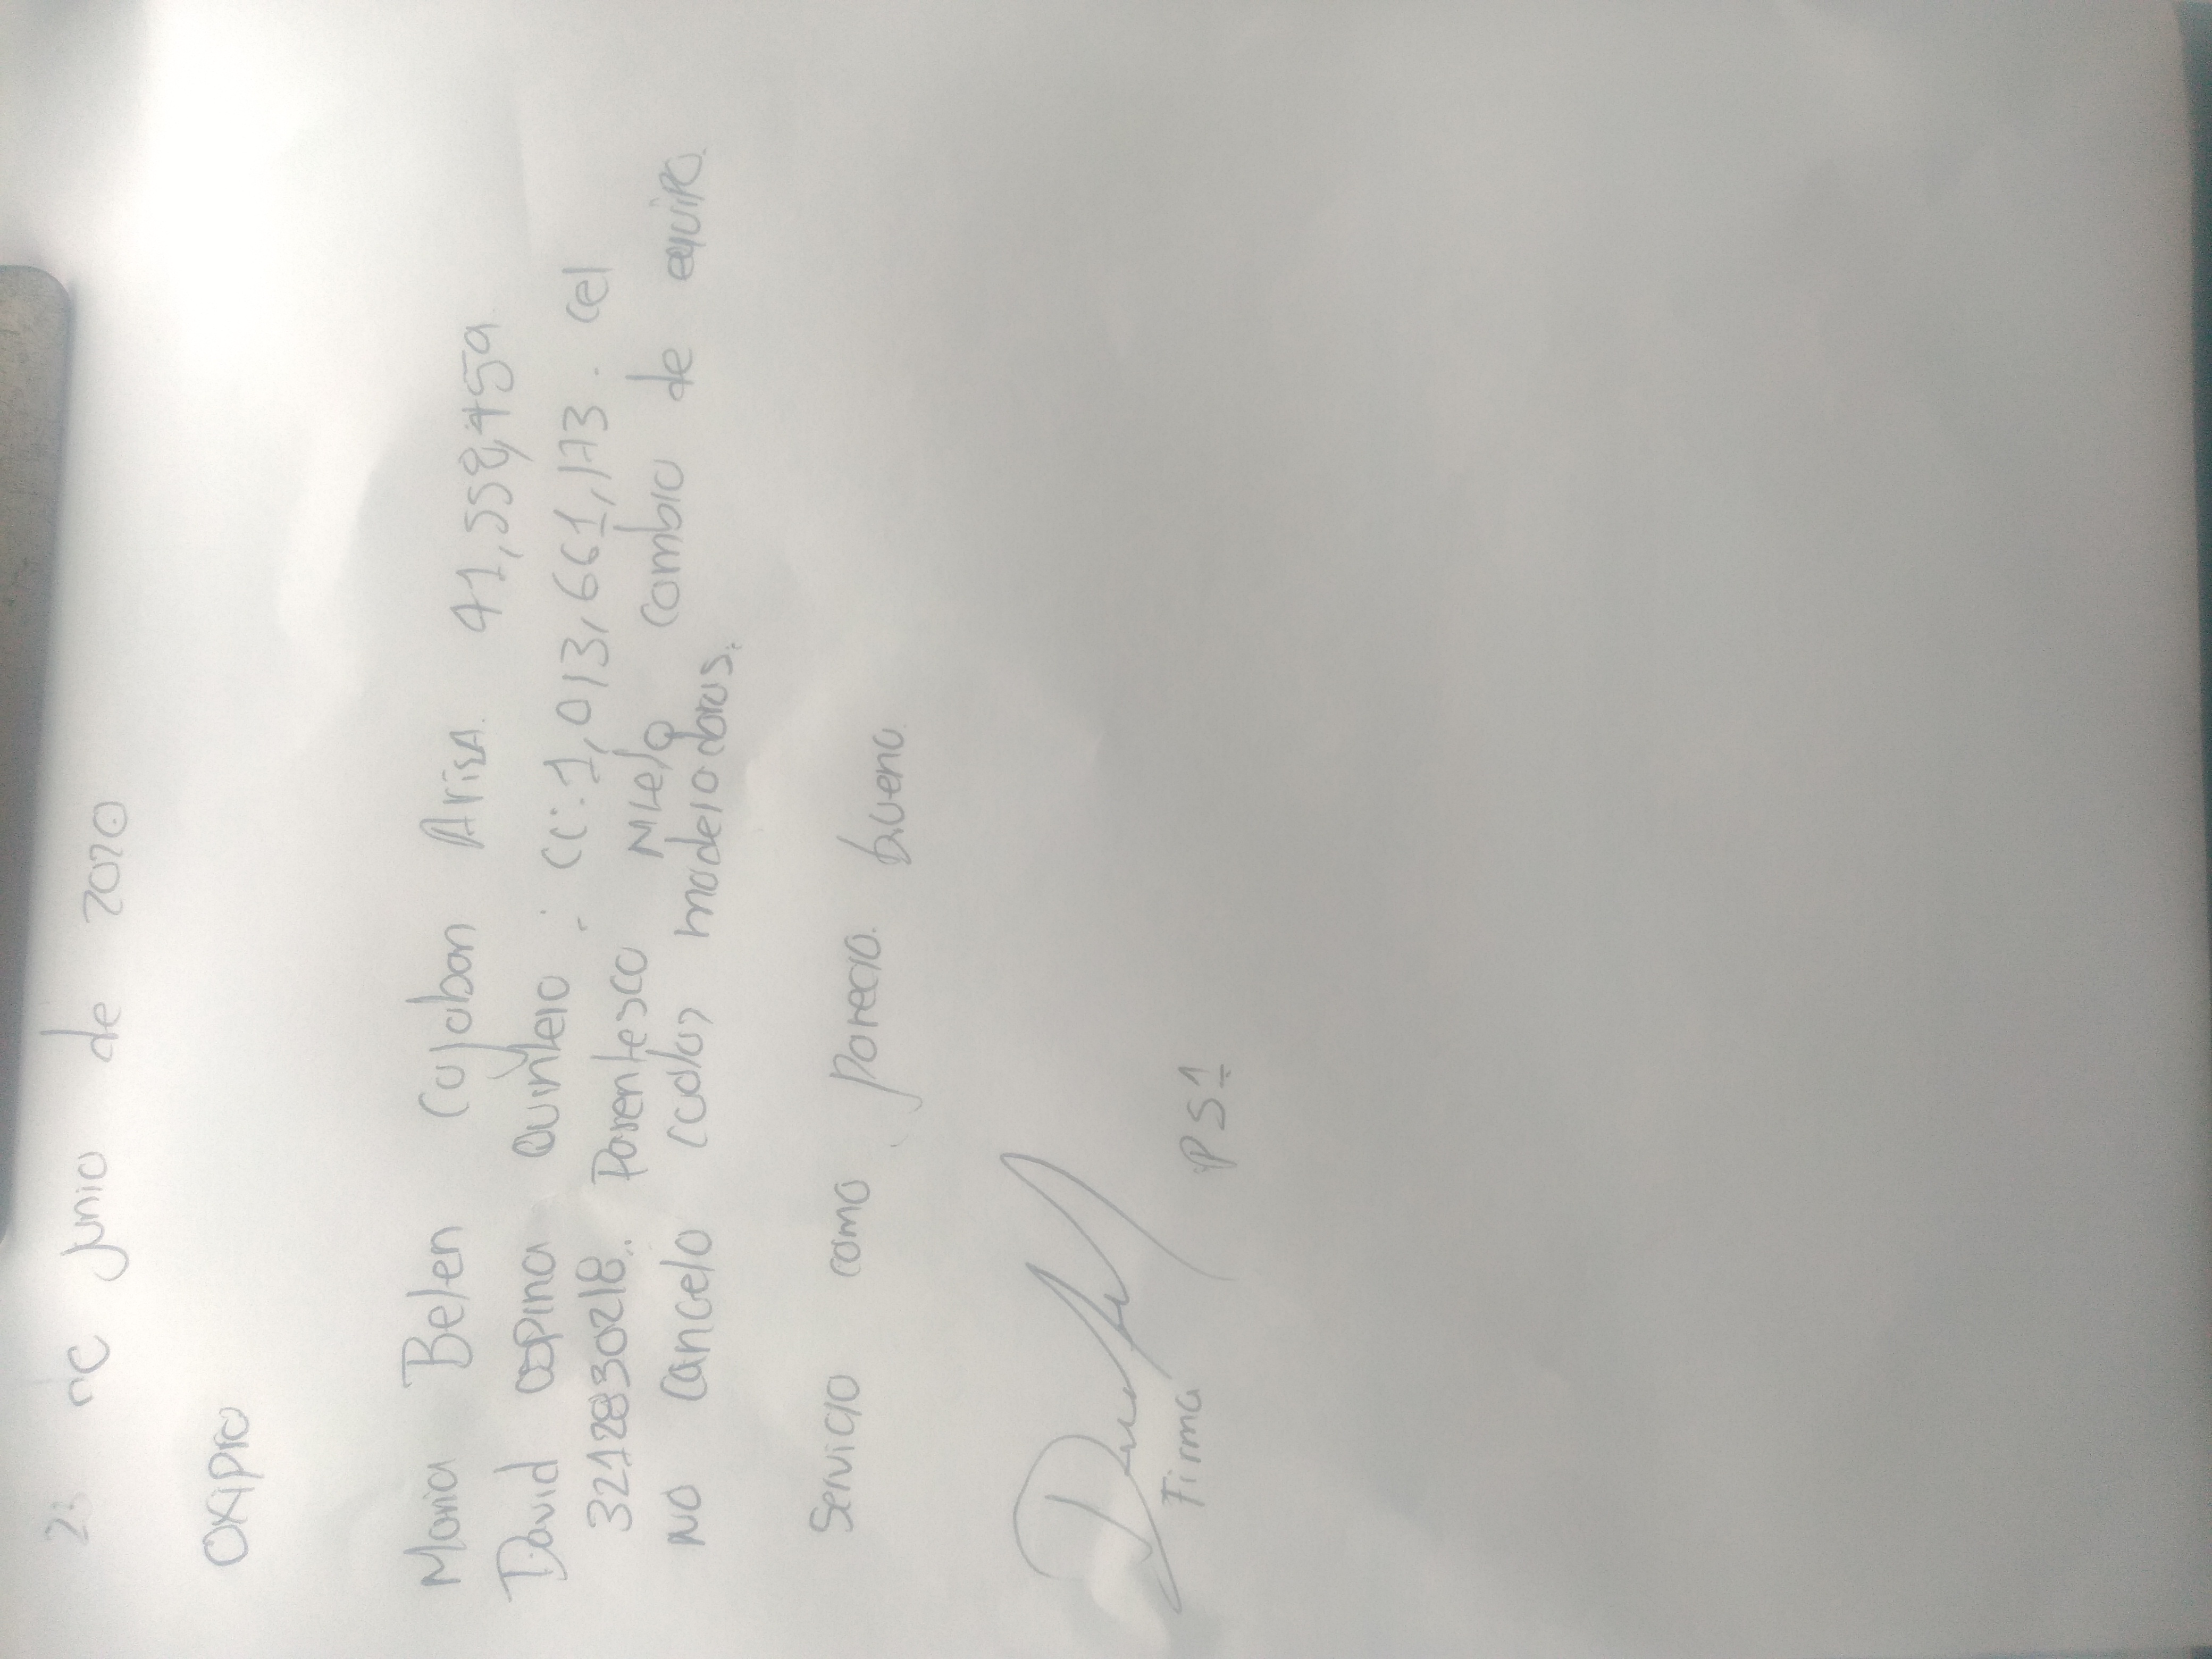 23 de junio de 2020
OXIPRO
Maria Belen Cujaban Ariza. 41,558,459.
David ospina quintero : CC: 1,013,661,173. cel
3212830218. Parentesco Nieto cambio de equipo.
NO cancelo cuota moderadora.
Servicio como parecio. bueno.
Firma PS1